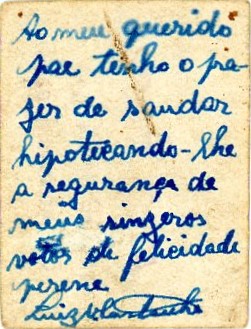 Ao meu querido
pae tenho o pra-
zer de saudar
hipotecando-lhe
a segurança de
meus sinzeros
votos de felicidade
perene
Luiz